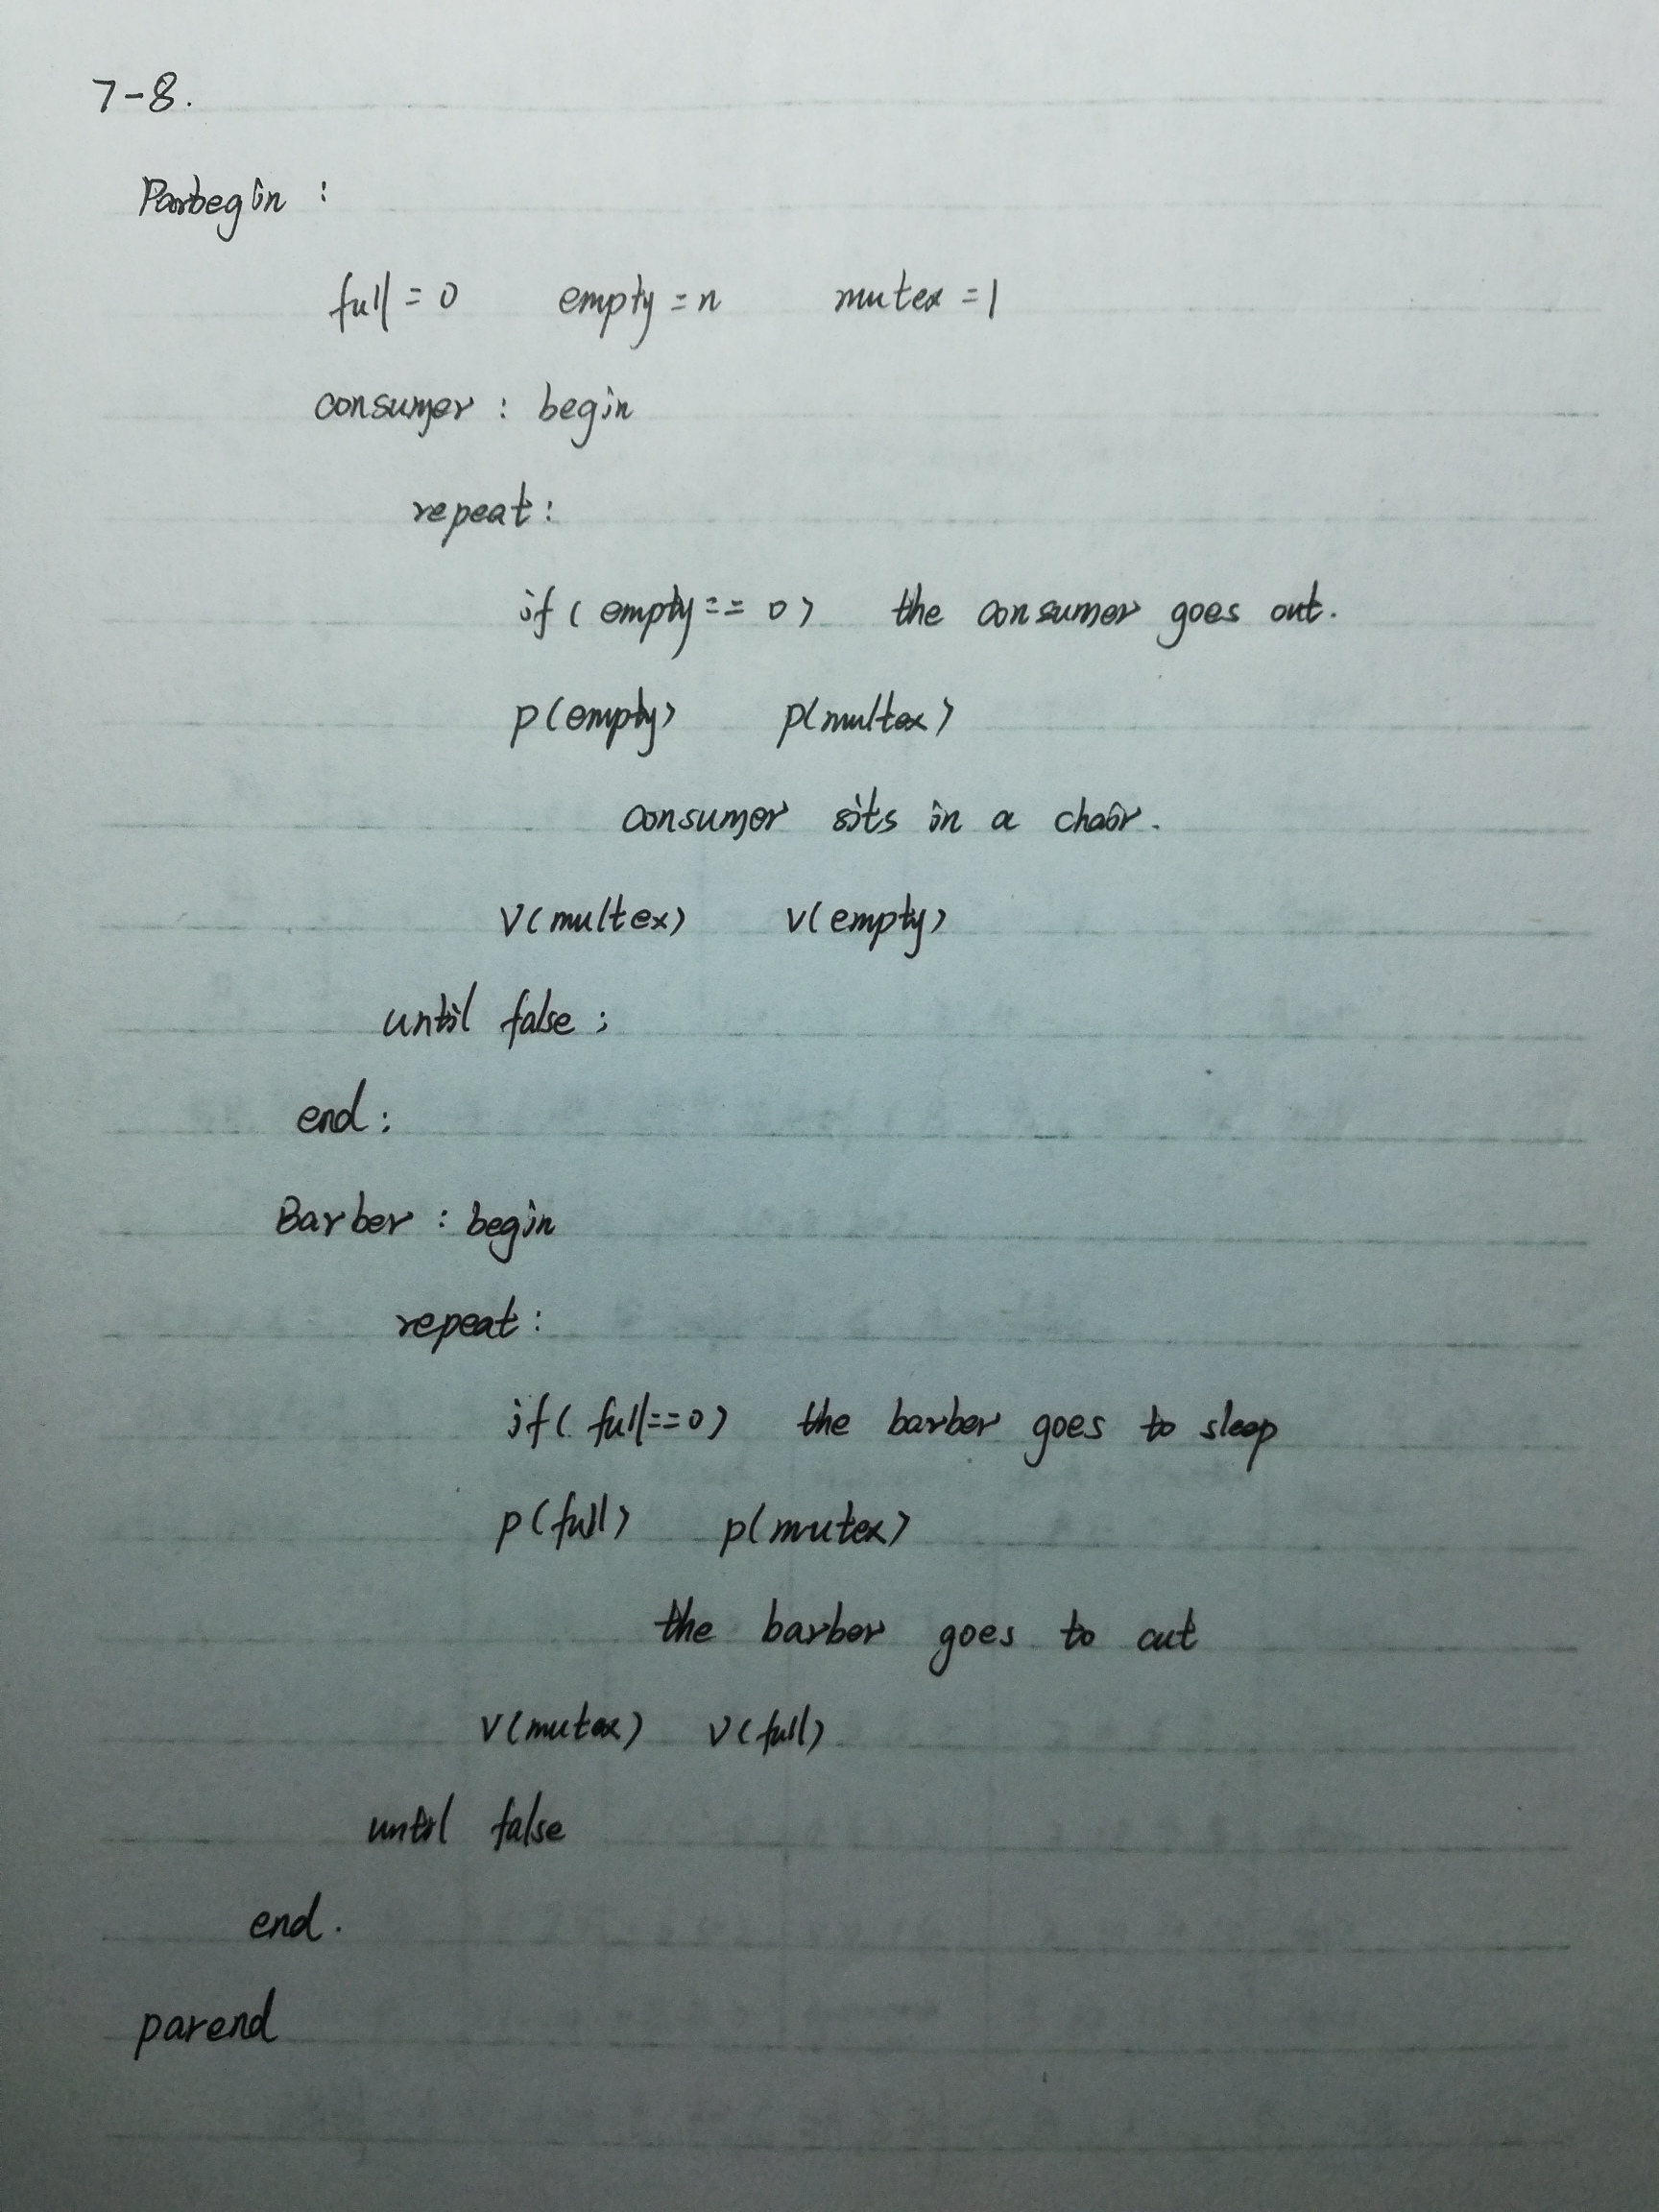 7-8.
Parbegin :
full = 0 empty = n mutex = 1
consumer : begin
repeat :
if ( empty == 0 ) the consumer goes out.
p(empty) p(multex)
consumer sits in a chair.
V(multex) v(empty)
until false ;
end ;
Barber : begin
repeat :
if ( full==0 ) the barber goes to sleep
p(full) p(mutex)
the barber goes to cut
V(mutex) v(full)
until false
end.
parend